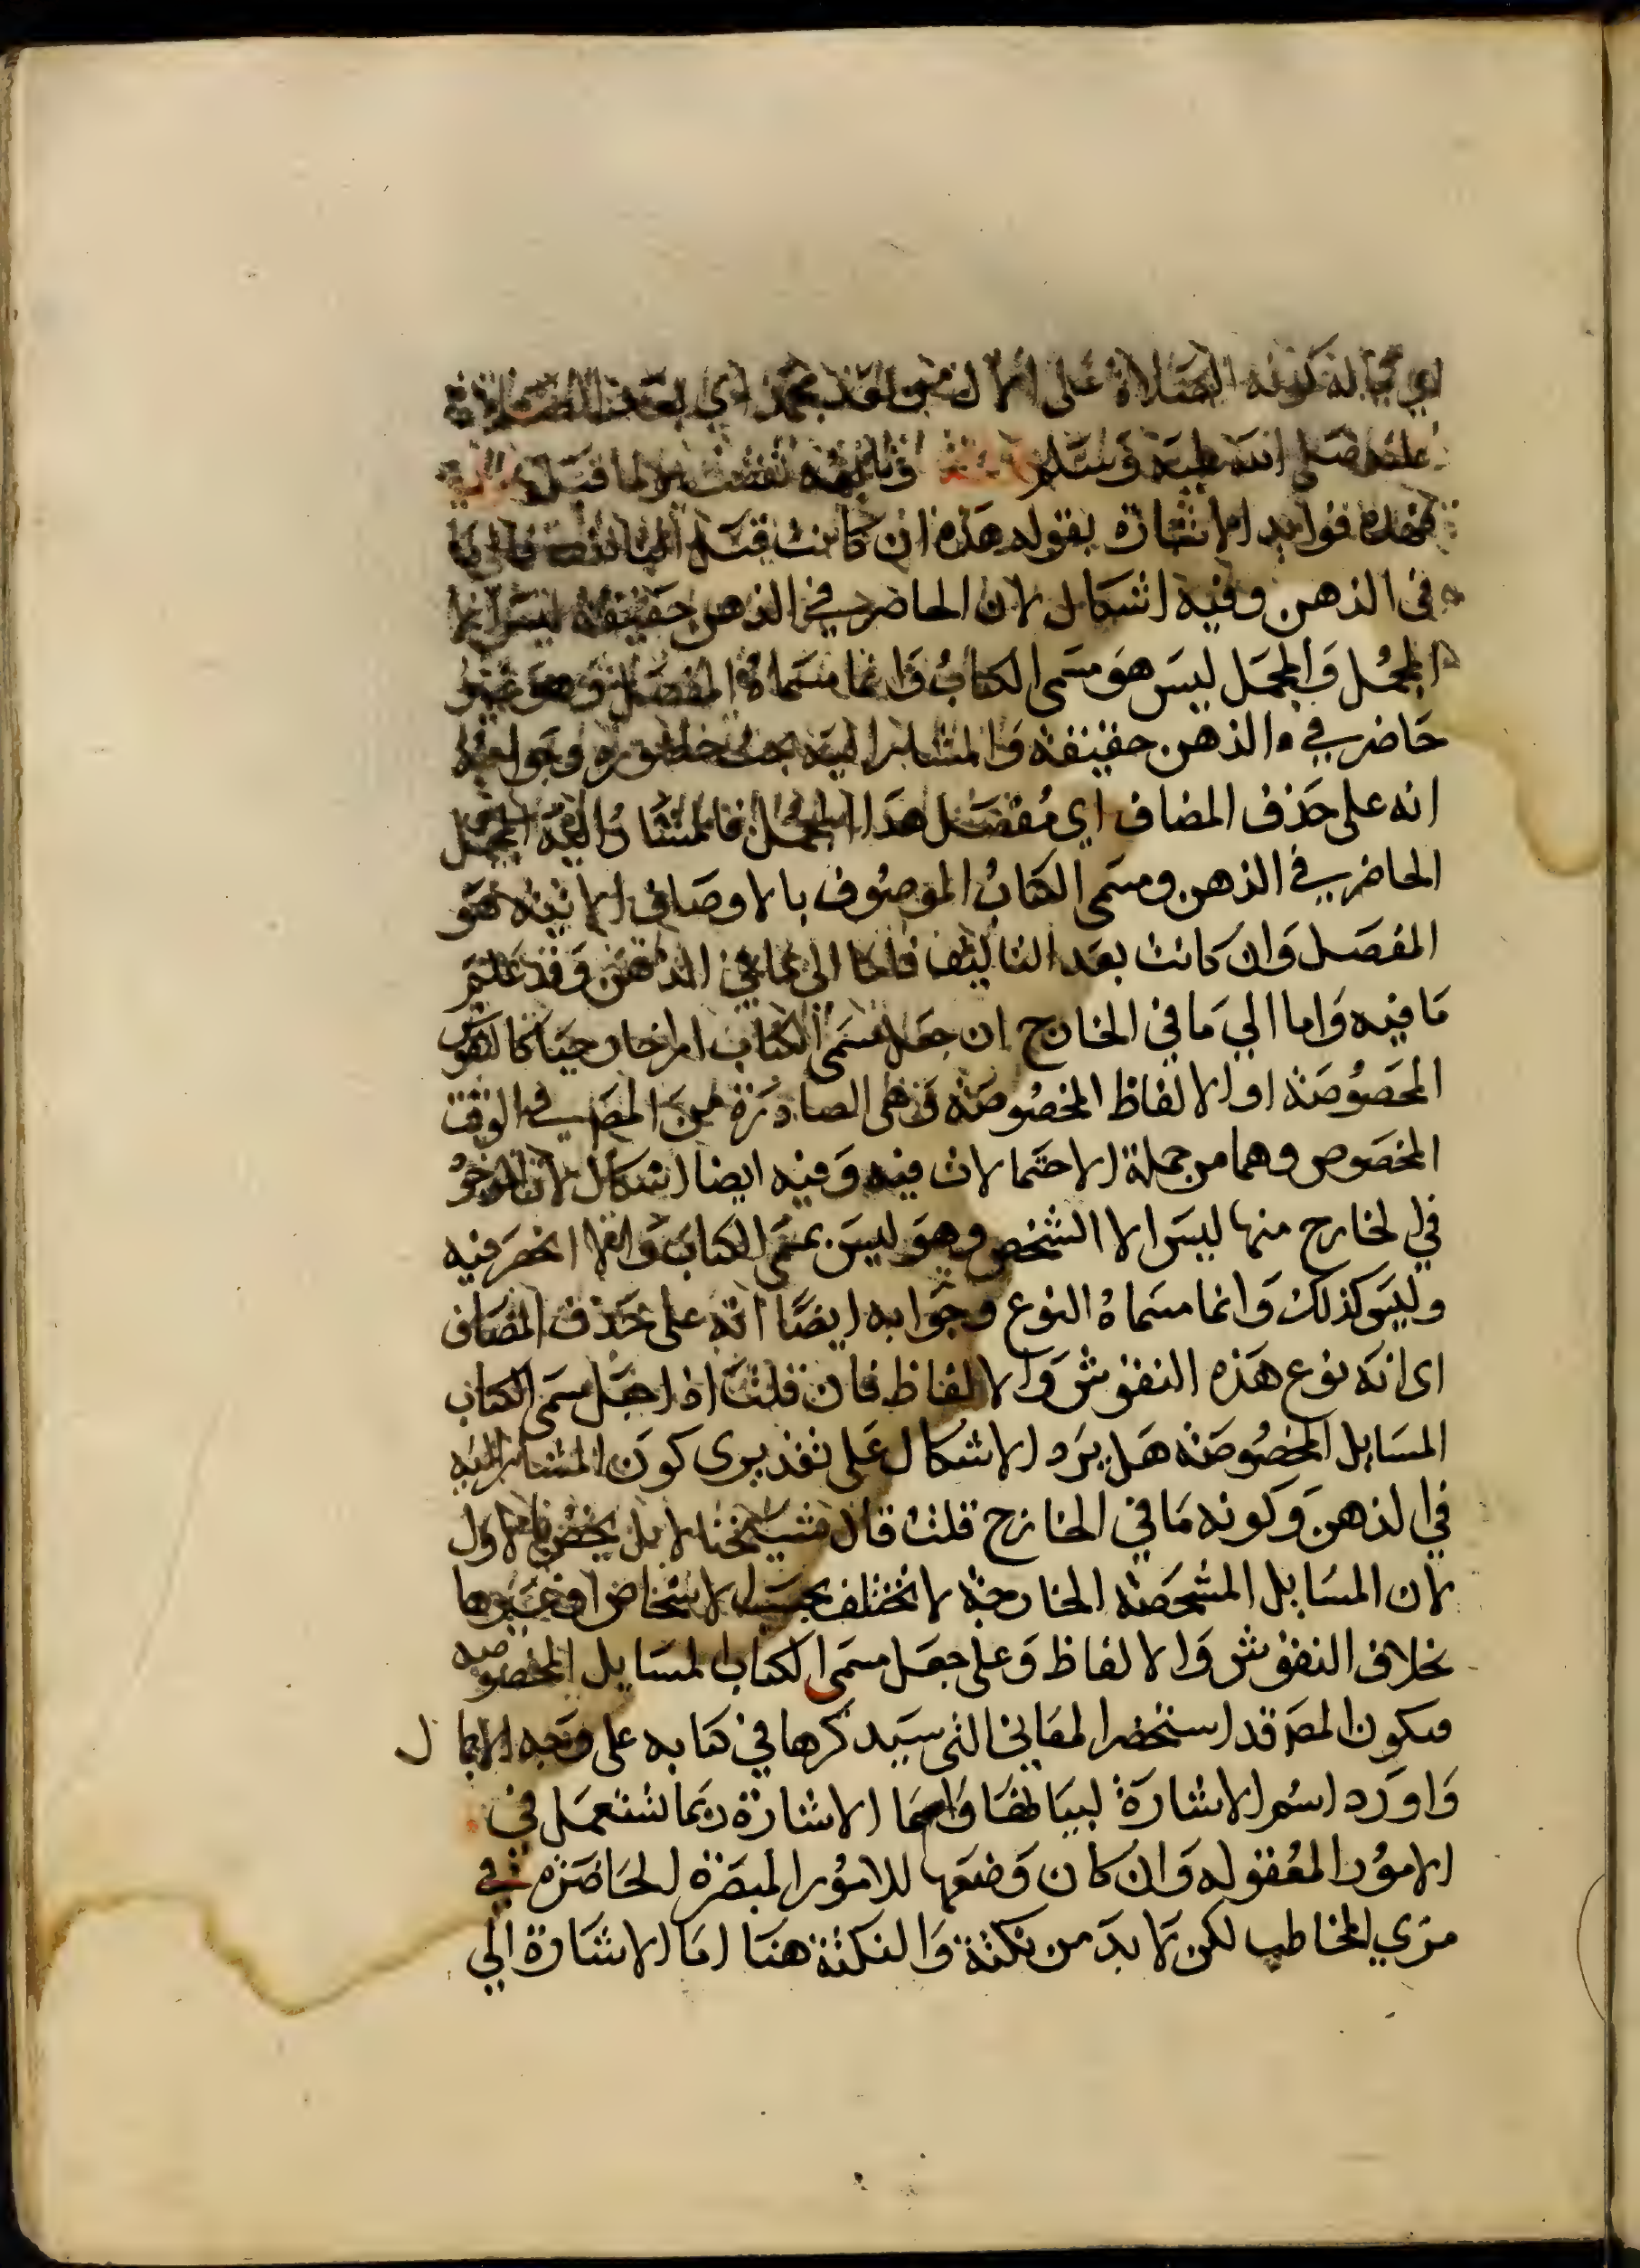 الصلاة على الال من بعد محمد اي بعد الصلاة
عليه صلى الله عليه وسلم
فهذه فوايد الاشارة بقوله هذه ان كانت قبل التاليف فالى ما
في الذهن وفيه اشكال لان الحاضر في الذهن حقيقة ليس الا
المجمل والمجمل ليس هو مسمى الكتاب وانما مسماه المفصل وهو غير
حاضر في الذهن حقيقة والمشار اليه يجب حضوره وجوابه
انه على حذف المضاف اي مفصل هذا المجمل فالمشار اليه المجمل
الحاضر في الذهن ومسمى الكتاب الموصوف بالاوصاف الاتية هو
المفصل وان كانت بعد التاليف فاما الى ما في الذهن وقد علم
ما فيه واما الي ما في الخارج ان جعل مسمى الكتاب امرا خارجيا كالنقوش
المخصوصة او الالفاظ المخصوصة وهى الصادرة من المص في الوقت
المخصوص وهما من جملة الاحتمالات فيه وفيه ايضا اشكال لان الموجو
في الخارج منها ليس الا الشخص وهو ليس بمسمى الكتاب والا انحصر فيه
وليس كذلك وانما مسماه النوع وجوابه ايضا انه على حذف المضاف
اى انه نوع هذه النقوش والالفاظ فان قلت اذا جعل مسمى الكتاب
المسايل المخصوصة هل يرد الاشكال على تقديرى كون المشار اليه
في الذهن وكونه ما في الخارج قلت قال شيخنا لا بل يختص بالاول
لان المسايل المشخصة الخارجية لا تختلف بحسب الاشخاص او غيرها
بخلاف النقوش والالفاظ وعلى جعل مسمى الكتاب المسايل المخصوصه
فيكون المص قد استحضر المعاني التى سيذكرها في كتابه على وجه الاجمال
واورد اسم الاشارة لبيانها واسما الاشارة ربما تستعمل في
الامور المعقوله وان كان وضعها للامور المبصرة الحاضرة في
مرءي المخاطب لكن لا بد من نكتة والنكتة هنا اما الاشارة الي